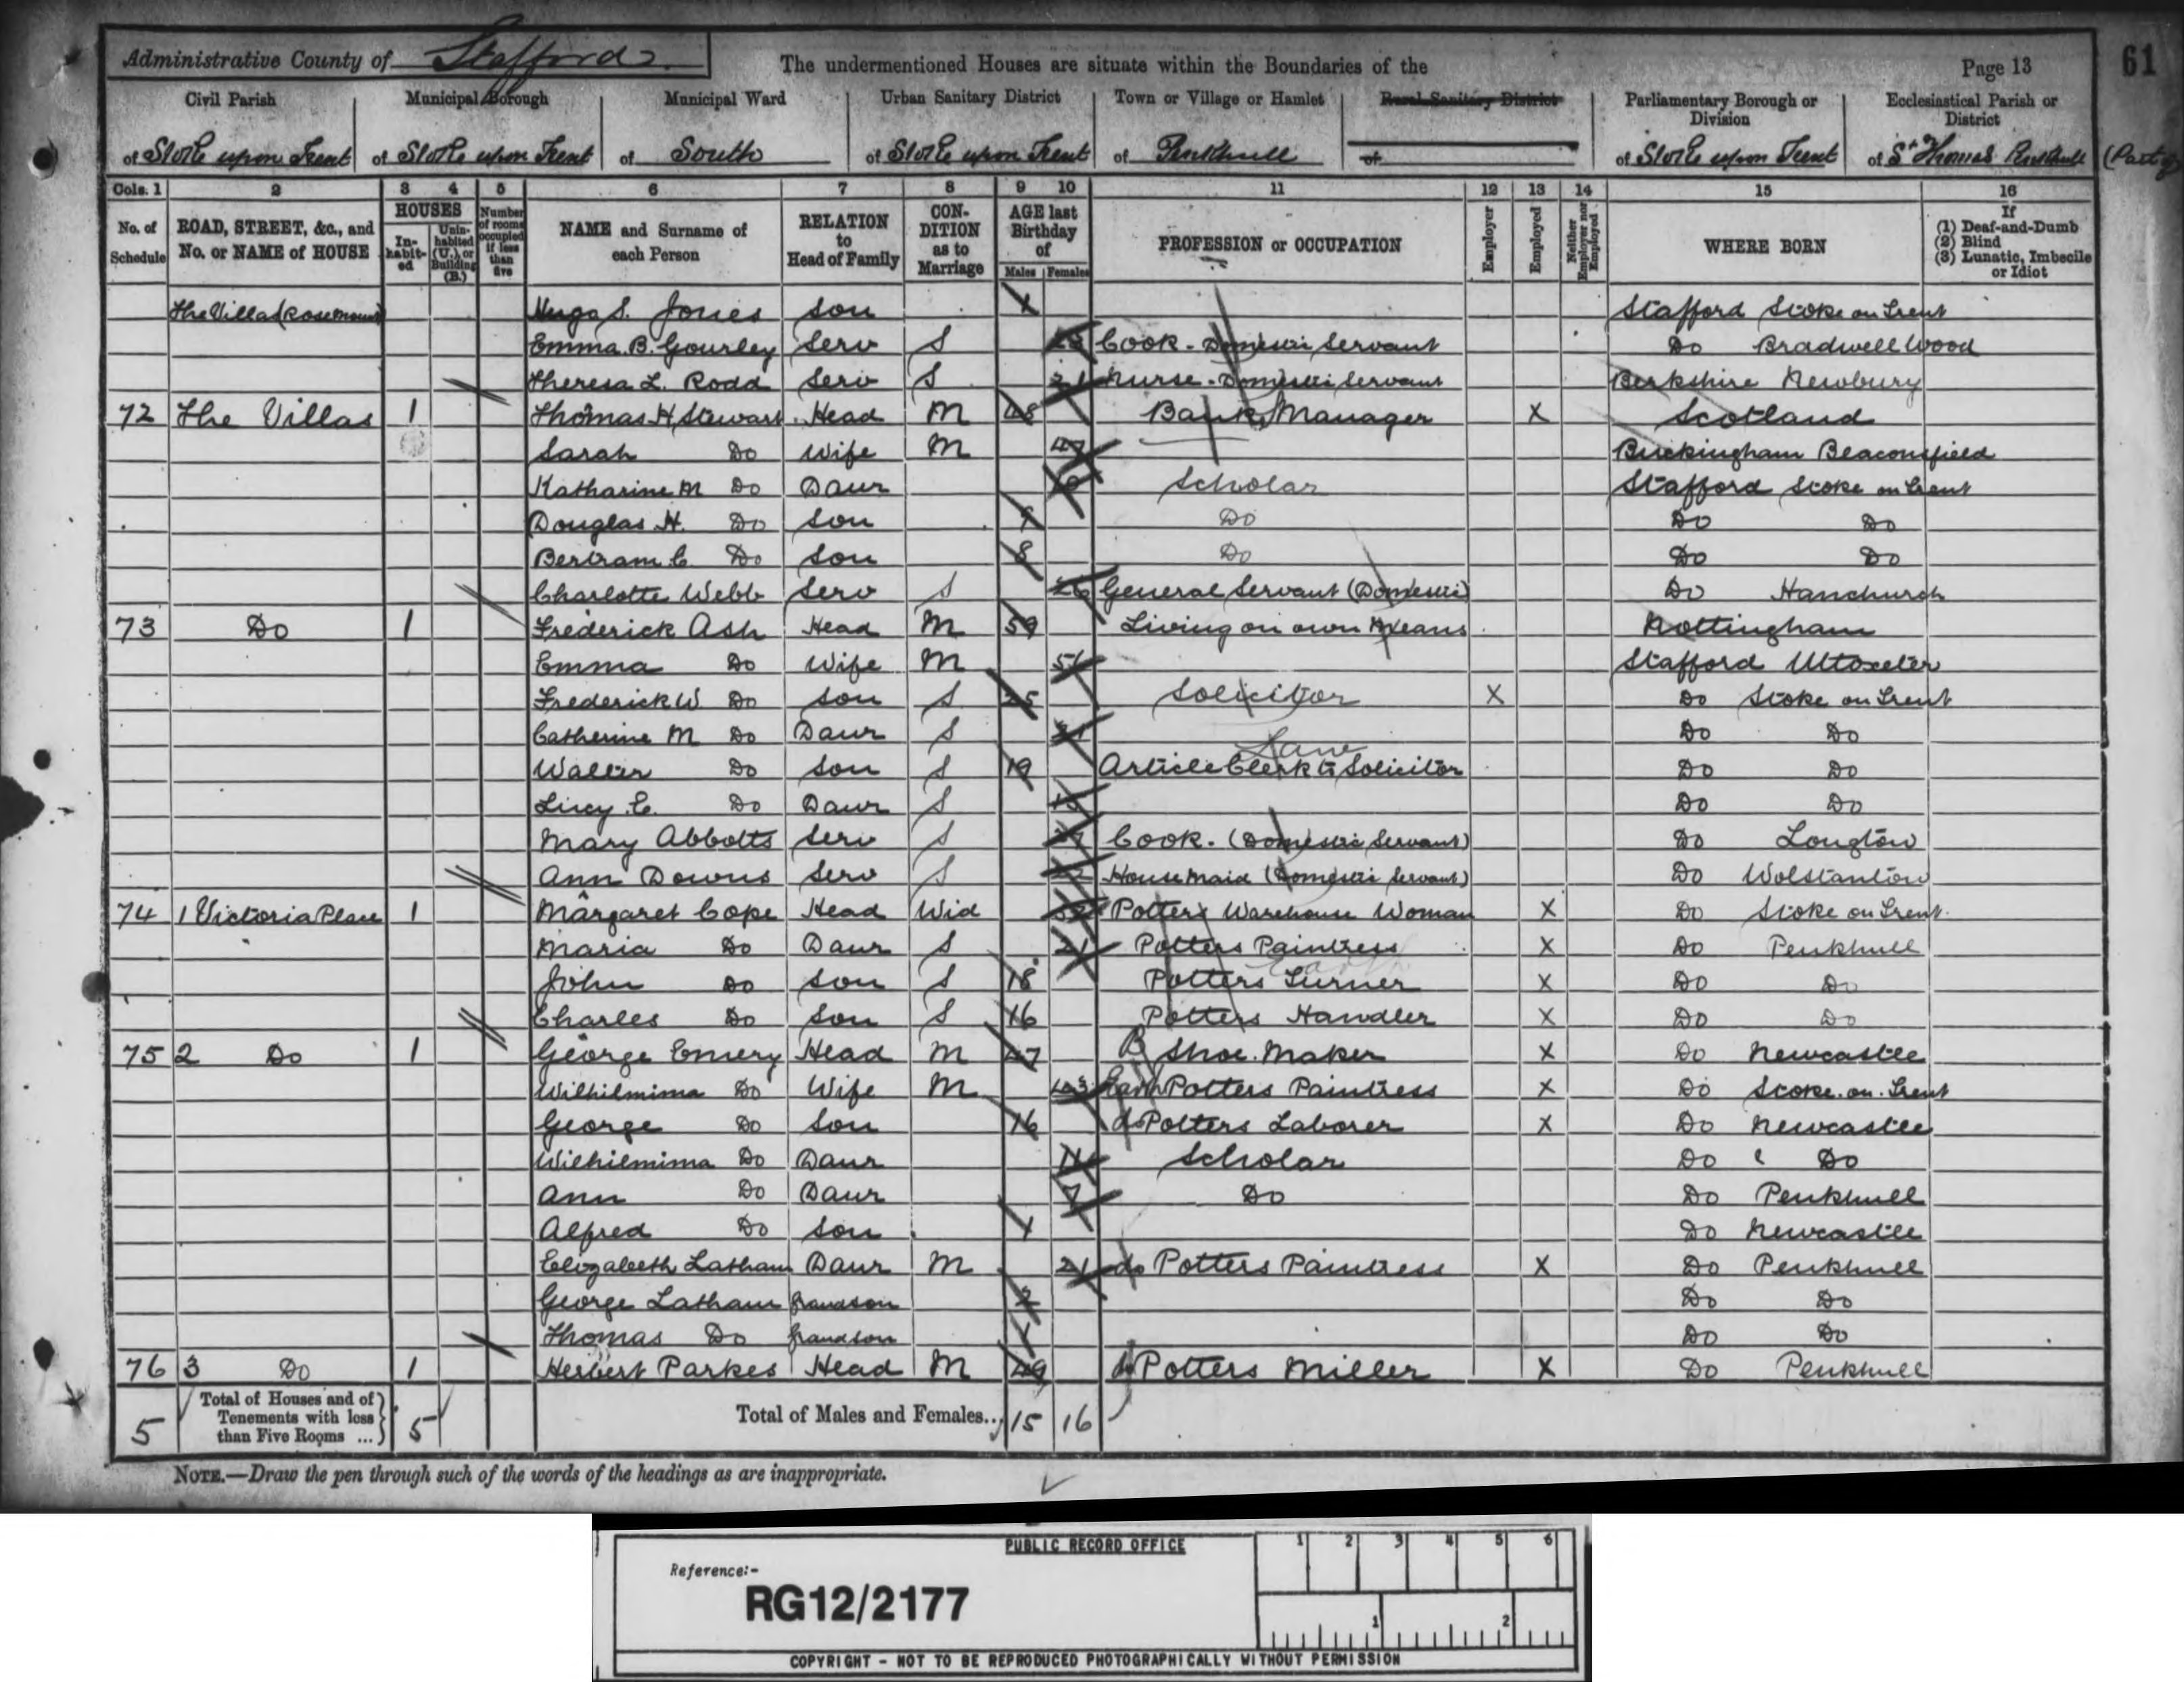 Administrative County of Stafford. The undermentioned Houses are situate within the Boundaries of the Page 13 61
Civil Parish Municipal Borough Municipal Ward Urban Sanitary District Town or Village or Hamlet Rural Sanitary District Parliamentary Borough or Division Ecclesiastical Parish or District
of Stoke upon Trent of Stoke upon Trent of South of Stoke upon Trent of Penkhull of of Stoke upon Trent of St Thomas Penkhull (Part of)
Cols. 1 2 3 4 5 6 7 8 9 10 11 12 13 14 15 16
No. of Schedule ROAD, STREET, &c., and No. or NAME of HOUSE HOUSES Inhabited Uninhabited (U.), or Building (B.) Number of rooms occupied if less than five NAME and Surname of each Person RELATION to Head of Family CONDITION as to Marriage AGE last Birthday of Males Females PROFESSION or OCCUPATION Employer Employed Neither Employer nor Employed WHERE BORN If (1) Deaf-and-Dumb (2) Blind (3) Lunatic, Imbecile or Idiot
The Villas (Rosemount) Hugo S. Jones Son Stafford Stoke on Trent
Emma. B. Gourley Serv S Cook - Domestic Servant Do Bradwell Wood
Theresa L. Rodd Serv S 21 Nurse - Domestic Servant Berkshire Newbury
72 The Villas 1 Thomas H. Stewart Head M 48 Bank Manager X Scotland
Sarah Do Wife M 47 Buckingham Beaconsfield
Katharine M Do Daur 10 Scholar Stafford Stoke on Trent
Douglas H. Do Son 9 Do Do Do
Bertram C. Do Son 8 Do Do Do
Charlotte Webb Serv S 26 General Servant (Domestic) Do Hanchurch
73 Do 1 Frederick Ash Head M 59 Living on own Means Nottingham
Emma Do Wife M 51 Stafford Uttoxeter
Frederick W. Do Son S 25 Solicitor X Do Stoke on Trent
Catherine M Do Daur S 21 Do Do
Law
Walter Do Son S 19 Article Clerk to Solicitor Do Do
Lucy. E. Do Daur S Do Do
Mary Abbotts Serv S Cook. (Domestic Servant) Do Longton
Ann Downs Serv S House maid (Domestic Servant) Do Wolstanton
74 1 Victoria Place 1 Margaret Cope Head Wid Potters Warehouse Woman X Do Stoke on Trent.
Maria Do Daur S 21 Potters Paintress X Do Penkhull
John Do Son S 18 Potters Turner X Do Do
Charles Do Son S 16 Potters Handler X Do Do
75 2 Do 1 George Emery Head M 47 B Shoe. Maker X Do Newcastle
Wilhilmima Do Wife M 43 Earth Potters Paintress X Do Stoke. on. Trent
George Do Son 16 do Potters Laborer X Do Newcastle
Wilhilmima Do Daur 11 Scholar Do Do
Ann Do Daur 7 Do Do Penkhull
Alfred Do Son Do Newcastle
Elizabeth Latham Daur M 21 do Potters Paintress X Do Penkhull
George Latham Grandson 2 Do Do
Thomas Do Grandson Do Do
76 3 Do 1 Herbert Parkes Head M 49 do Potters Miller X Do Penkhull
5 Total of Houses and of Tenements with less than Five Rooms ... 5 Total of Males and Females... 15 16
NOTE.—Draw the pen through such of the words of the headings as are inappropriate.
PUBLIC RECORD OFFICE 1 2 3 4 5 6
Reference:-
RG12/2177
1 2
COPYRIGHT - NOT TO BE REPRODUCED PHOTOGRAPHICALLY WITHOUT PERMISSION